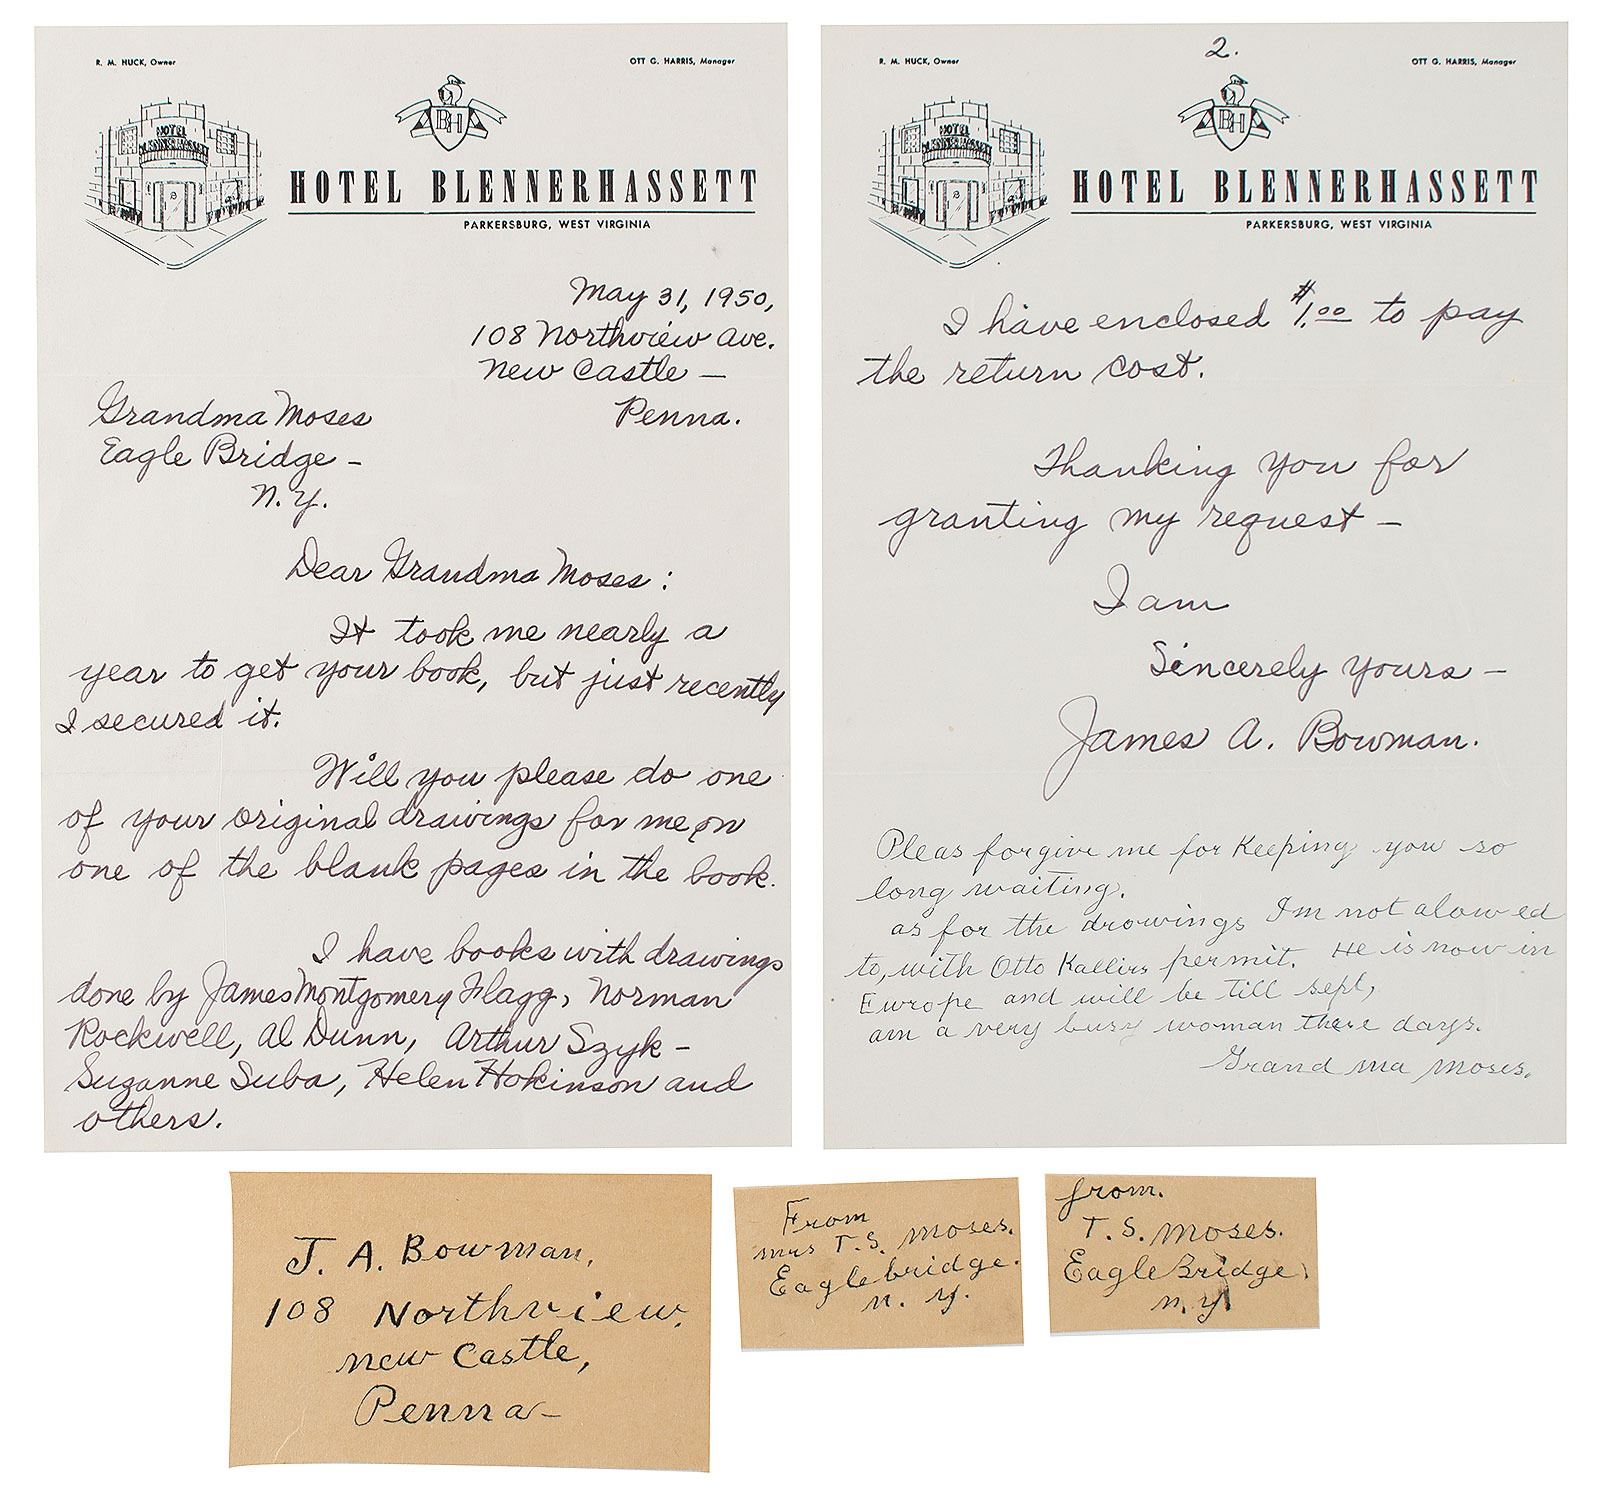 R. M. HUCK, Owner
OTT G. HARRIS, Manager
HOTEL
BLENNERHASSETT
BH
HOTEL BLENNERHASSETT
PARKERSBURG, WEST VIRGINIA
May 31, 1950,
108 Northview Ave.
New Castle –
Penna.
Grandma Moses
Eagle Bridge –
N.Y.
Dear Grandma Moses:
It took me nearly a
year to get your book, but just recently
I secured it.
Will you please do one
of your original drawings for me on
one of the blank pages in the book.
I have books with drawings
done by James Montgomery Flagg, Norman
Rockwell, Al Dunn, Arthur Szyk –
Suzanne Suba, Helen Hokinson and
others.
2.
R. M. HUCK, Owner
OTT G. HARRIS, Manager
HOTEL
BLENNERHASSETT
BH
HOTEL BLENNERHASSETT
PARKERSBURG, WEST VIRGINIA
I have enclosed $1.00 to pay
the return cost.
Thanking you for
granting my request –
I am
Sincerely yours –
James A. Bowman.
Pleas forgive me for Keeping you so
long waiting.
as for the drowings I'm not alowed
to, with Otto Kallirs permit. He is now in
Europe and will be till sept,
am a very busy woman these days.
Grand ma Moses.
J. A. Bowman,
108 Northview,
New Castle,
Penna –
From
Mrs T. S. Moses.
Eaglebridge.
N. Y.
from.
T. S. Moses.
Eagle Bridge,
N.Y.